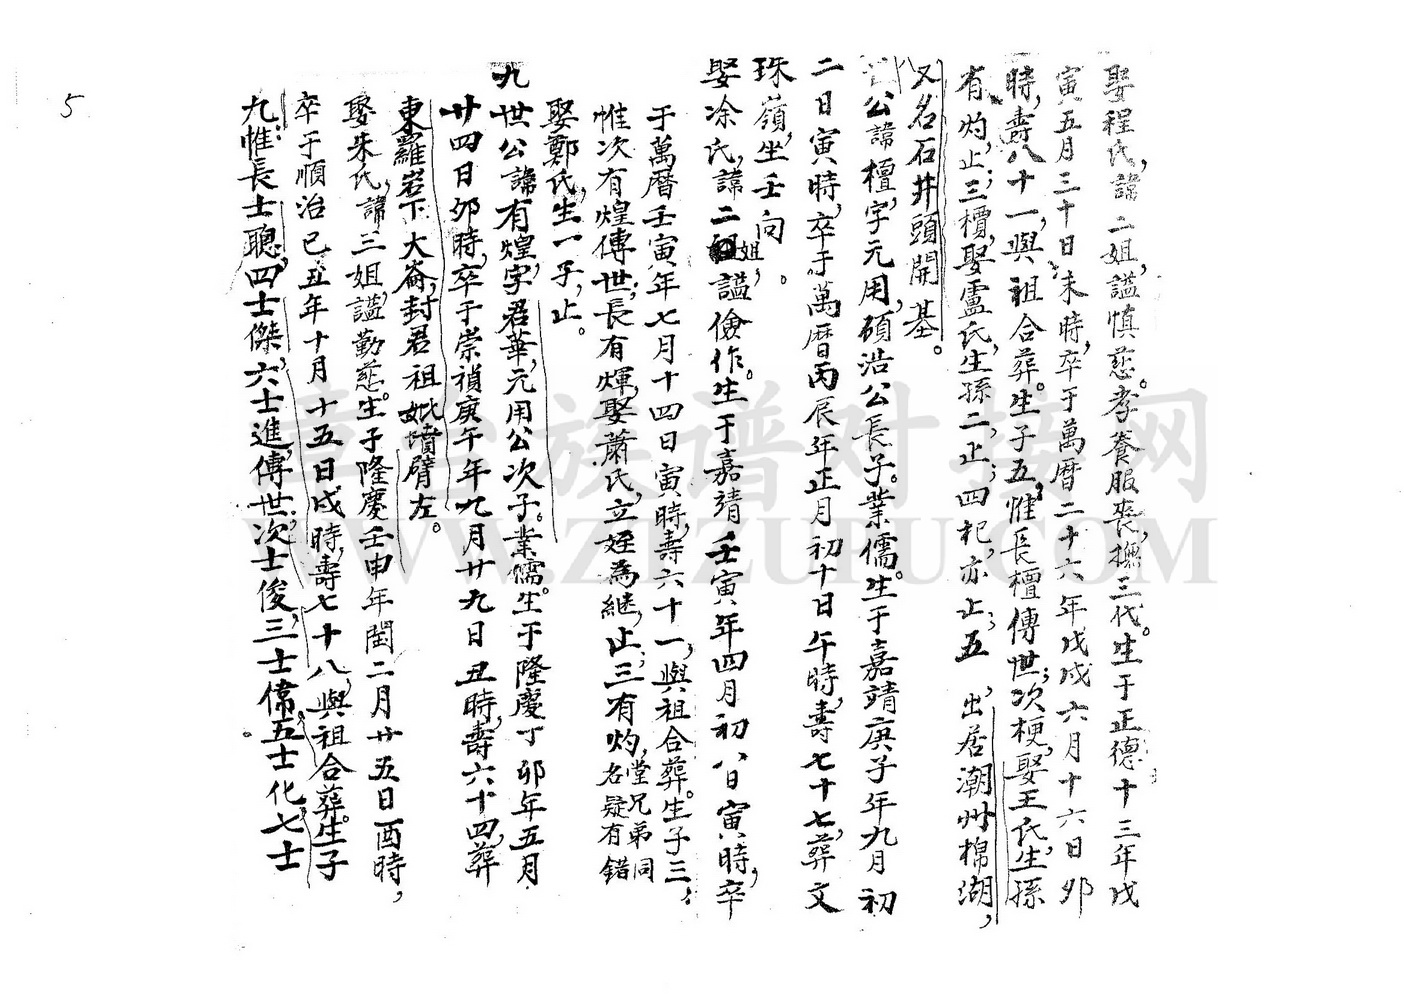 娶程氏，諱二姐，謚慎慈。孝養服喪，撫三代。生于正德十三年戊
寅五月三十日未時，卒于萬曆二十六年戊戌六月十六日卯
時，壽八十一，與祖合葬。生子五，惟長檀傳世；次梗，娶王氏，生孫
有灼，止；三檟，娶盧氏，生孫二，止；四杞，亦止；五　，出居潮州棉湖，
又名石井頭開基。
八公諱檀，字元用，碩浩公長子。業儒。生于嘉靖庚子年九月初
二日寅時，卒于萬曆丙辰年正月初十日午時，壽七十七，葬文
珠嶺，坐壬向　。
娶凃氏，諱二姐，謚儉作。生于嘉靖壬寅年四月初八日寅時，卒
于萬曆壬寅年七月十四日寅時，壽六十一，與祖合葬。生子三，
惟次有煌傳世；長有煇，娶蕭氏，立姪為継，止；三有灼，堂兄弟同名疑有錯
娶鄭氏，生一子，止。
九世公諱有煌，字君華，元用公次子。業儒。生于隆慶丁卯年五月
廿四日卯時，卒于崇禎庚午年九月廿九日丑時，壽六十四，葬
東蘿岩下大崙，封君祖妣墳臂左。
娶朱氏，諱三姐，謚勤慈。生于隆慶壬申年閏二月廿五日酉時，
卒于順治己丑年十月十五日戌時，壽七十八，與祖合葬。生子
九：惟長士聰，四士傑，六士進，傳世；次士俊，三士偉，五士化，七士
5
草根族谱对接网
WWW.ZFZUPU.COM